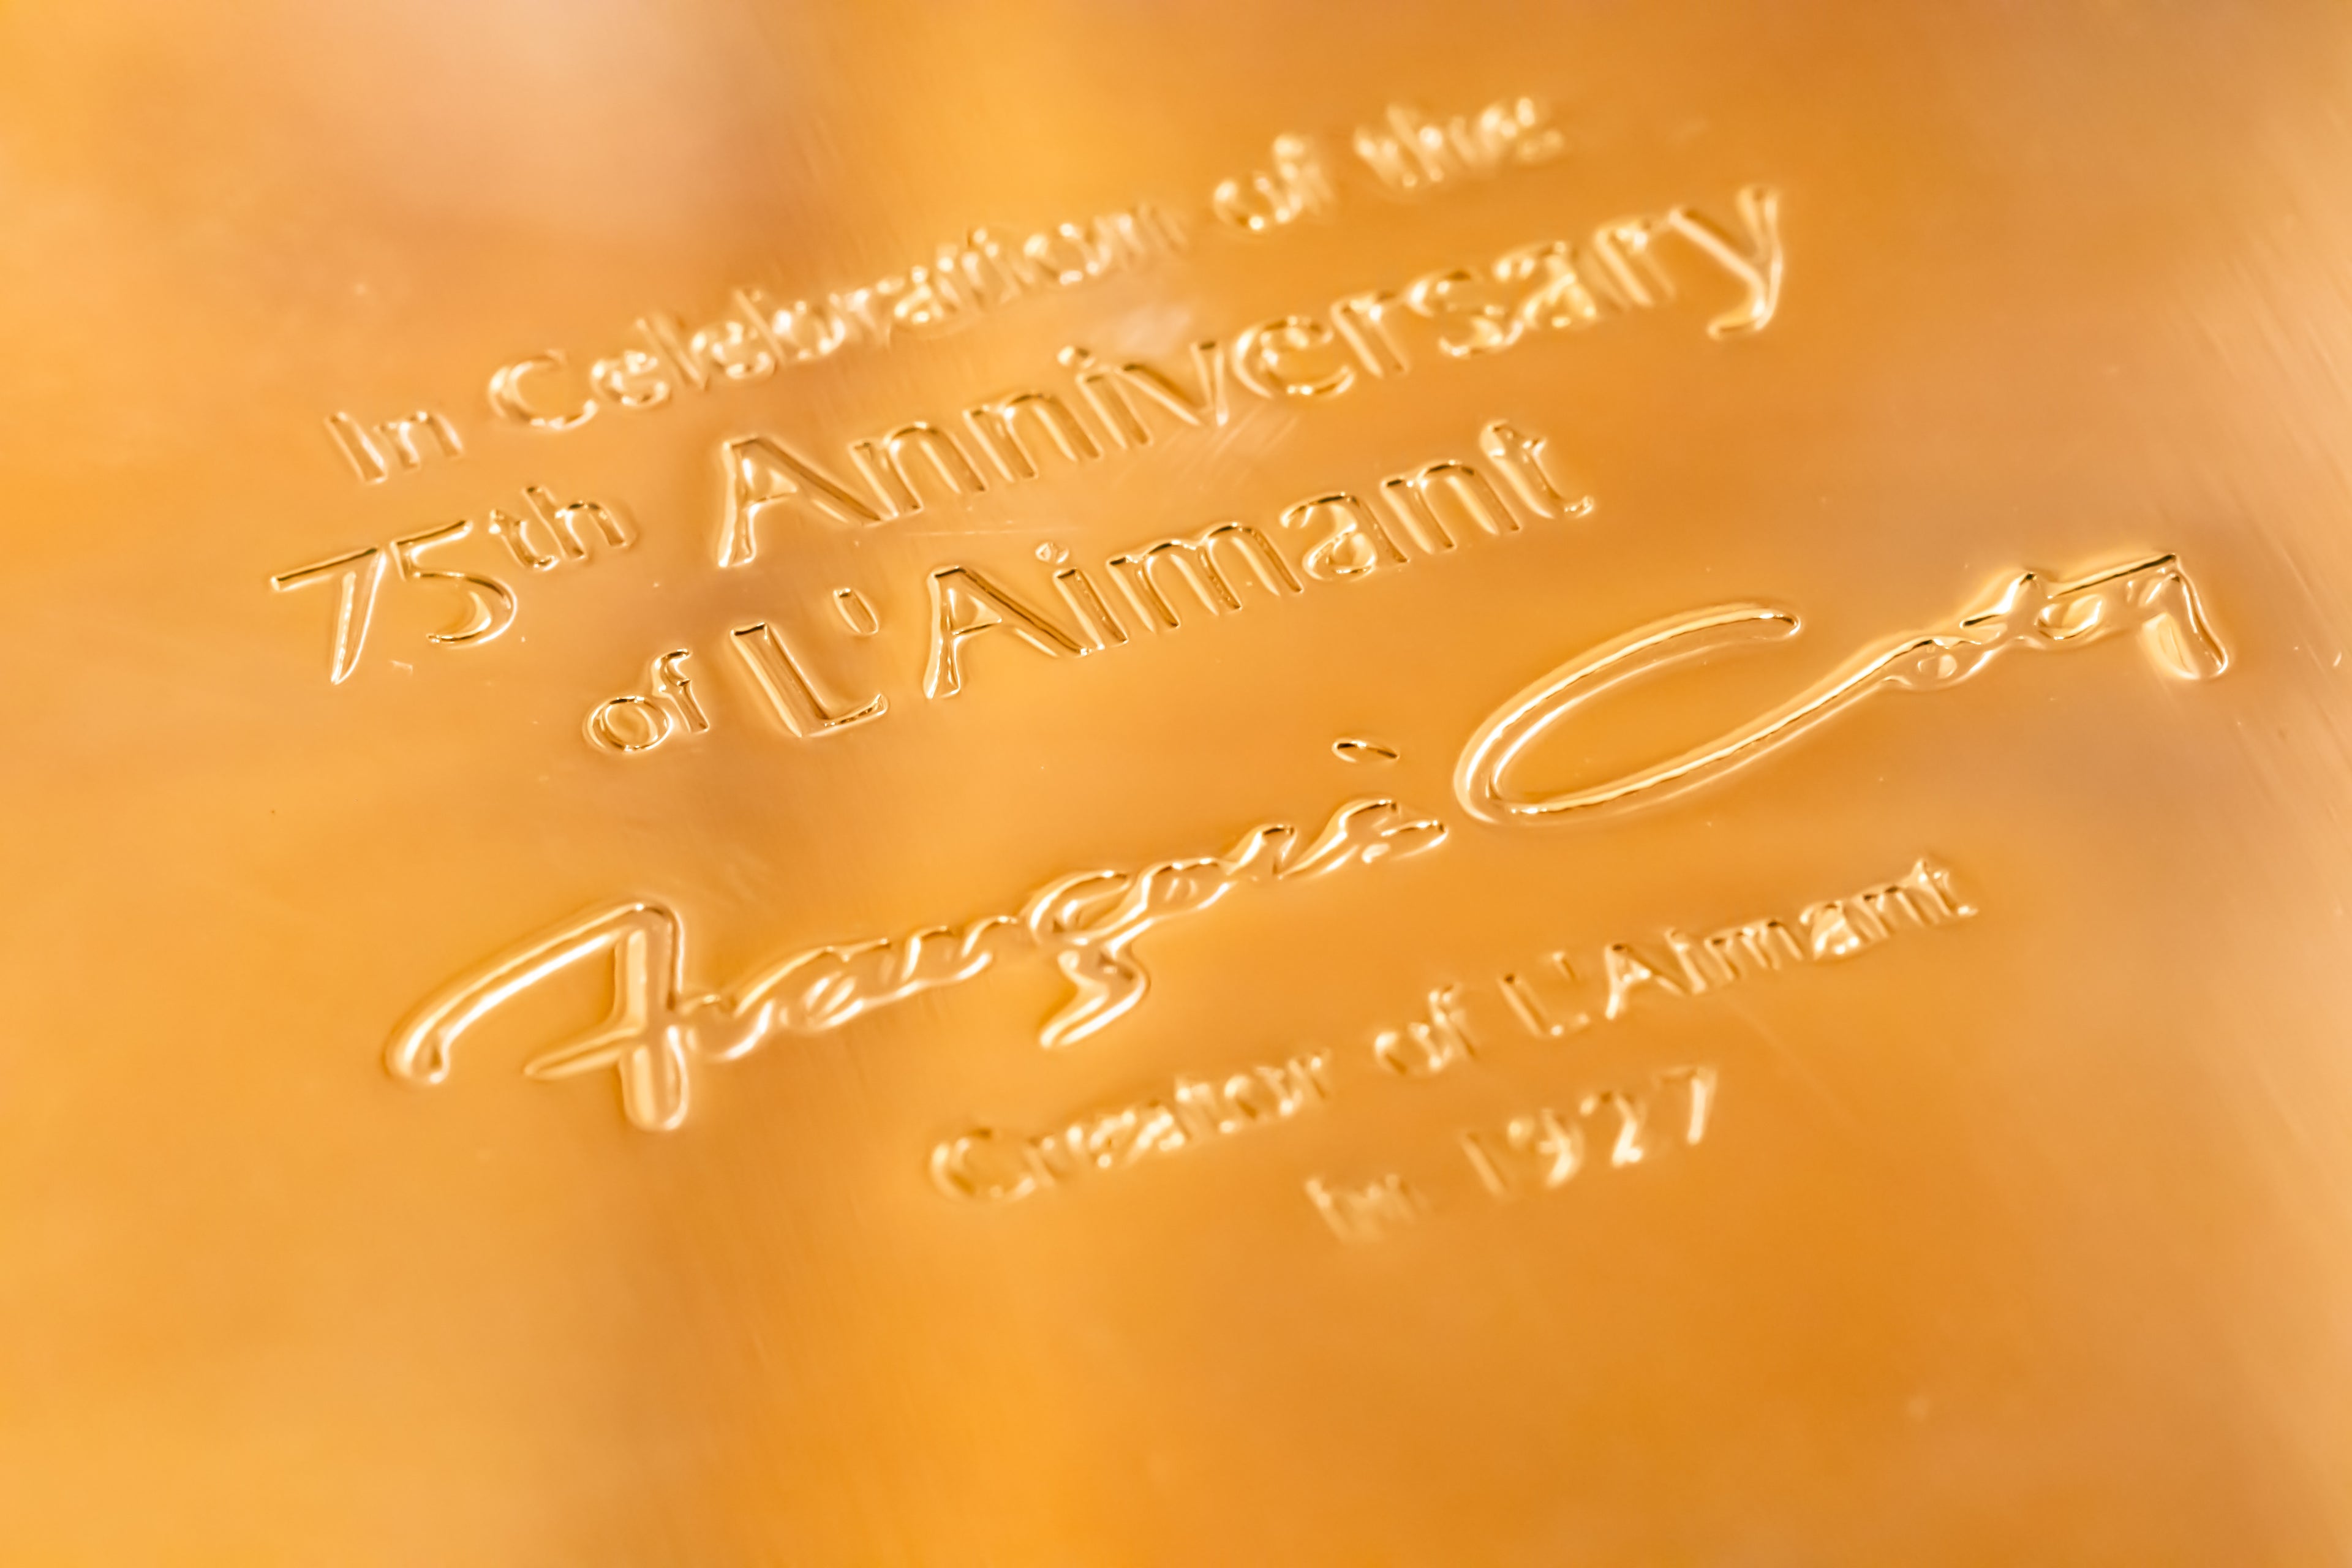 In Celebration of the
75th Anniversary
of L'Aimant
François Coty
Creator of L'Aimant
in 1927